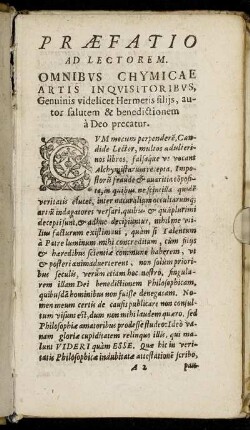 PRÆFATIO
AD LECTOREM.
OMNIBVS CHYMICAE
ARTIS INQVISITORIBVS,
Genuinis videlicet Hermetis filijs, au-
tor salutem & benedictionem
à Deo precatur.
CVM mecum perpenderē, Can-
dide Lector, multos adulteri-
nos libros, falsaque vt vocant
Alchymistarum recepta, Impo-
in quibus ne scintilla quidē
veritatis elucet, inter naturalium occultarumq;
artiū indagatores versari, quibus & quāplurimi
decepti sunt, & adhuc decipiuntur, nihil me vti-
lius facturum existimavi, quàm si Talentum
à Patre luminum mihi concreditum, cum filijs
& hæredibus scientiæ commune haberem, vt
& posteri animaduerterent, non solùm priori-
bus seculis, verùm etiam hoc nostro, singula-
rem illam Dei benedictionem Philosophicam,
quibusdā hominibus non fuisse denegatam. No-
men meum certis de causis publicare non consul-
tum visum est, dum non mihi laudem quæro, sed
Philosophiæ amatoribus prodesse studeo: Ideò va-
nam gloriæ cupiditatem relinquo illis, qui ma-
lunt VIDERI quàm ESSE. Quæ hic in veri-
tatis Philosophicæ indubitatæ attestationē scribo,
A 2